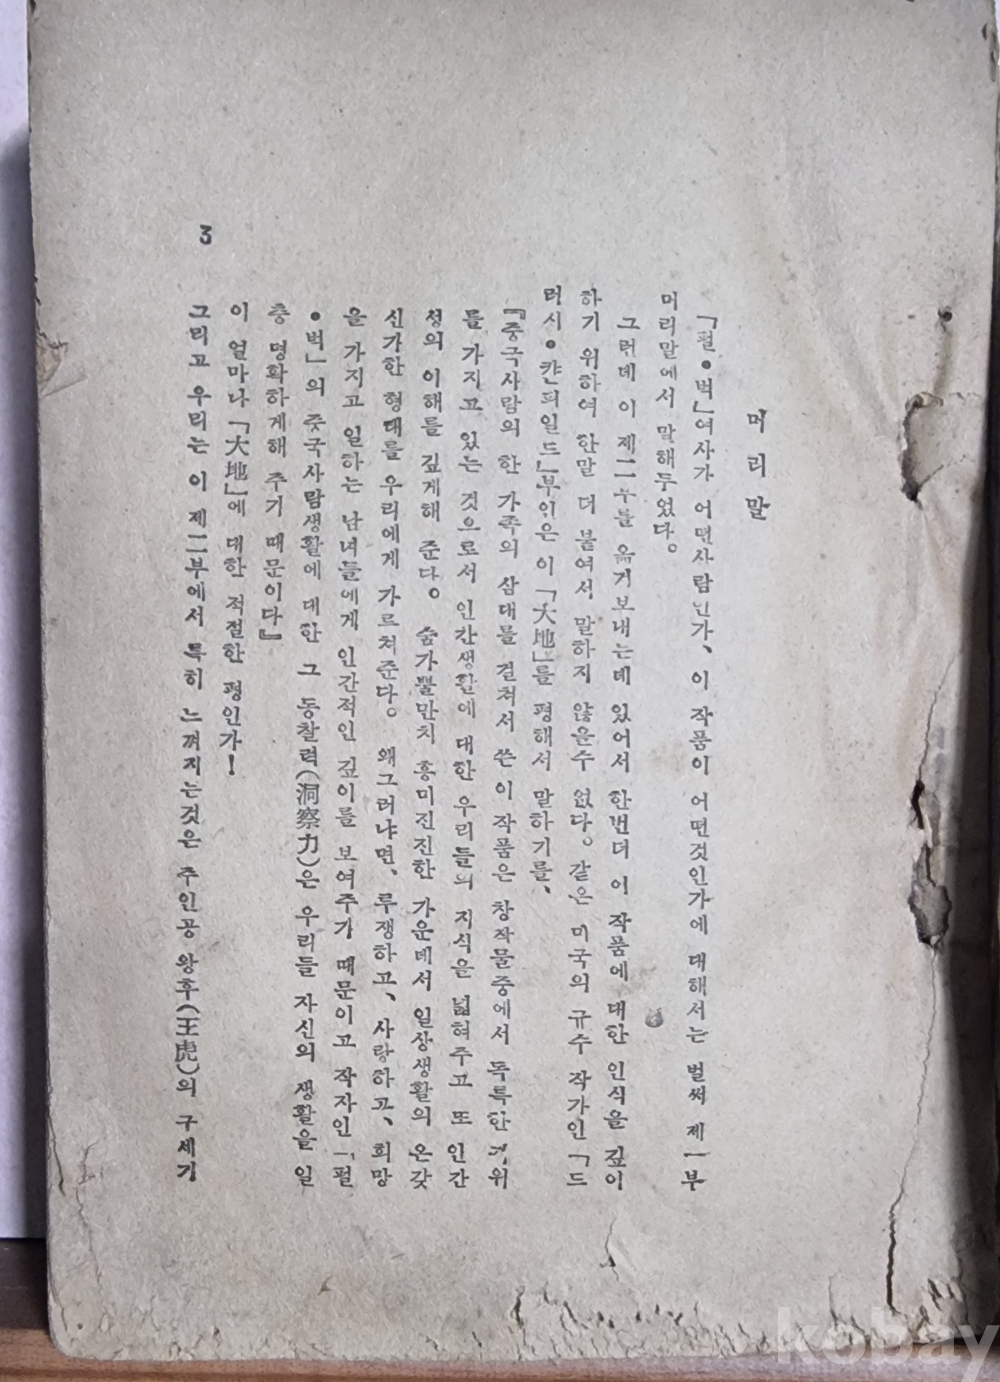 머리말
「펄•벅」여사가 어떤사람인가、이 작품이 어떤것인가에 대해서는 벌써 제一부
머리말에서 말해두었다。
그런데 이 제二부를 옮기보내는데 있어서 한번더 이 작품에 대한 인식을 깊이
하기 위하여 한말 더 붙여서 말하지 않을수 없다。같은 미국의 규수 작가인 「드
러시•캰피일드」부인은 이 「大地」를 평해서 말하기를、
『중국사람의 한 가족의 삼대를 걸쳐서 쓴 이 작품은 창작물중에서 독특한 거위
를 가지고 있는 것으로서 인간생활에 대한 우리들의 지식을 넓혀주고 또 인간
성의 이해를 깊게해 준다。 숨가뿔만치 흥미진진한 가운데서 일상생활의 온갖
신기한 형태를 우리에게 가르쳐준다。 왜그러냐면、루쟁하고、사랑하고、희망
을 가지고 일하는 남녀들에게 인간적인 깊이를 보여주기 때문이고 작자인 「펄
•벅」의 중국사람생활에 대한 그 동찰력(洞察力)은 우리들 자신의 생활을 일
층 명확하게해 주기 때문이다』
이 얼마나 「大地」에 대한 적절한 평인가!
그리고 우리는 이 제二부에서 특히 느껴지는것은 주인공 왕후(王虎)의 구세기
3
kobay